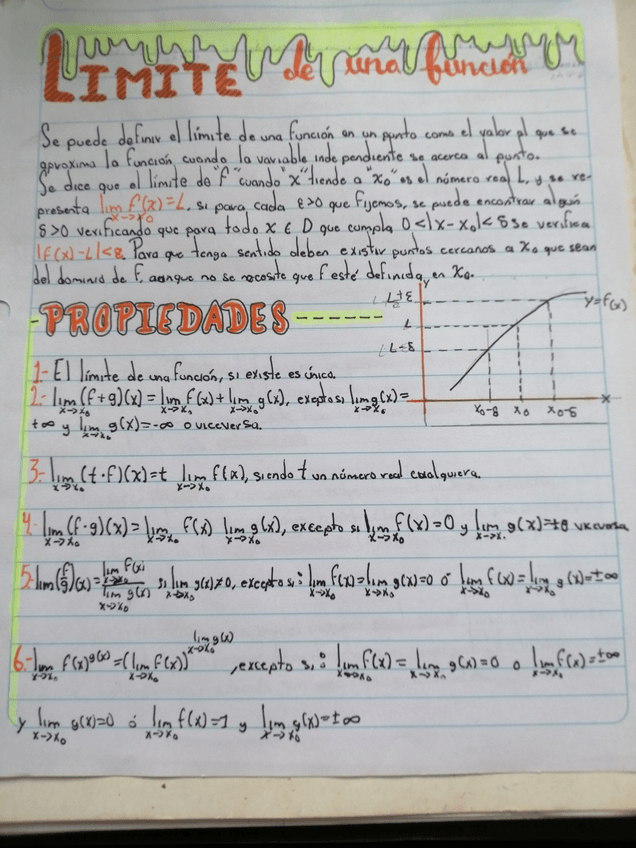 LIMITE de una función
Se puede definir el límite de una función en un punto como el valor al que se
aproxima la función, cuando la variable independiente se acerca al punto.
Se dice que el límite de "f" cuando "x" tiende a "x₀" es el número real L, y se re-
presenta lim x→x₀ f(x)=L, si para cada ε>0 que fijemos, se puede encontrar algún
δ>0 verificando que para todo x ∈ D que cumpla 0<|x-x₀|<δ se verifica
|f(x)-L|<ε. Para que tenga sentido deben existir puntos cercanos a x₀ que sean
del dominio de f, aunque no se necesite que f esté definida en x₀.
PROPIEDADES
y
L+ε
y=f(x)
L
L-ε
x₀-δ x₀ x₀-δ x
1.- El límite de una función, si existe es único.
2.- lim x→x₀ (f+g)(x)=lim x→x₀ f(x)+lim x→x₀ g(x), exepto si lim x→x₀ g(x)=
+∞ y lim x→x₀ g(x)=-∞ o viceversa.
3.- lim x→x₀ (t·f)(x)=t lim x→x₀ f(x), siendo t un número real cualquiera.
4.- lim x→x₀ (f·g)(x)=lim x→x₀ f(x) lim x→x₀ g(x), excepto si lim x→x₀ f(x)=0 y lim x→x₀ g(x)=
5.- lim x→x₀ (f/g)(x)= lim x→x₀ f(x) / lim x→x₀ g(x) si lim x→x₀ g(x)≠0, excepto si: lim x→x₀ f(x)=lim x→x₀ g(x)=0 ó lim x→x₀ f(x)=lim x→x₀ g(x)=±∞
6.- lim x→x₀ f(x)^g(x)=(lim x→x₀ f(x))^lim x→x₀ g(x), excepto si: lim x→x₀ f(x)=lim x→x₀ g(x)=0 o lim x→x₀ f(x)=±∞
y lim x→x₀ g(x)=0 ó lim x→x₀ f(x)=1 y lim x→x₀ g(x)=±∞